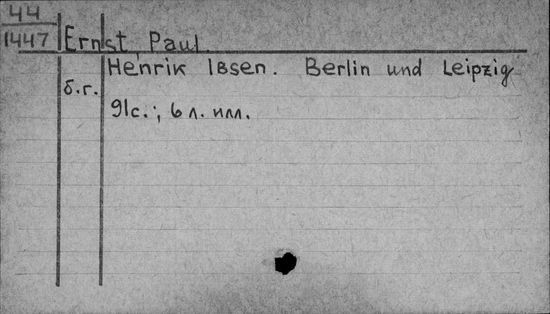 44
1447
Ernst, Paul.
Henrik Ibsen. Berlin und Leipzig
б.г.
91с.; 6 л. илл.